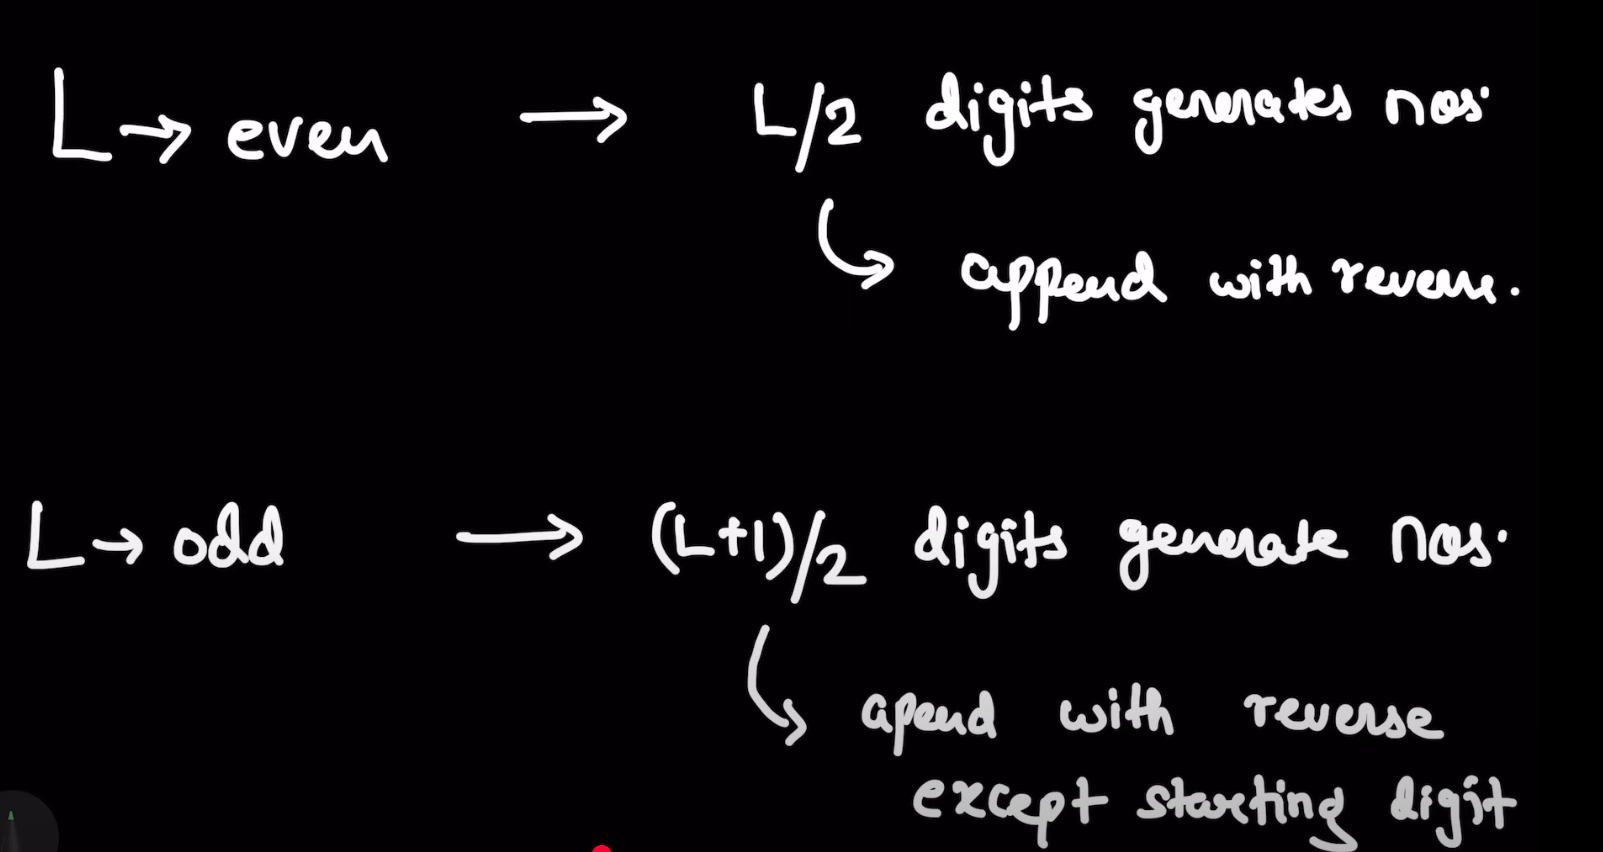 L → even → L/2 digits generates nos.
↳ append with reverse.
L → odd → (L+1)/2 digits generate nos.
↳ apend with reverse
except starting digit